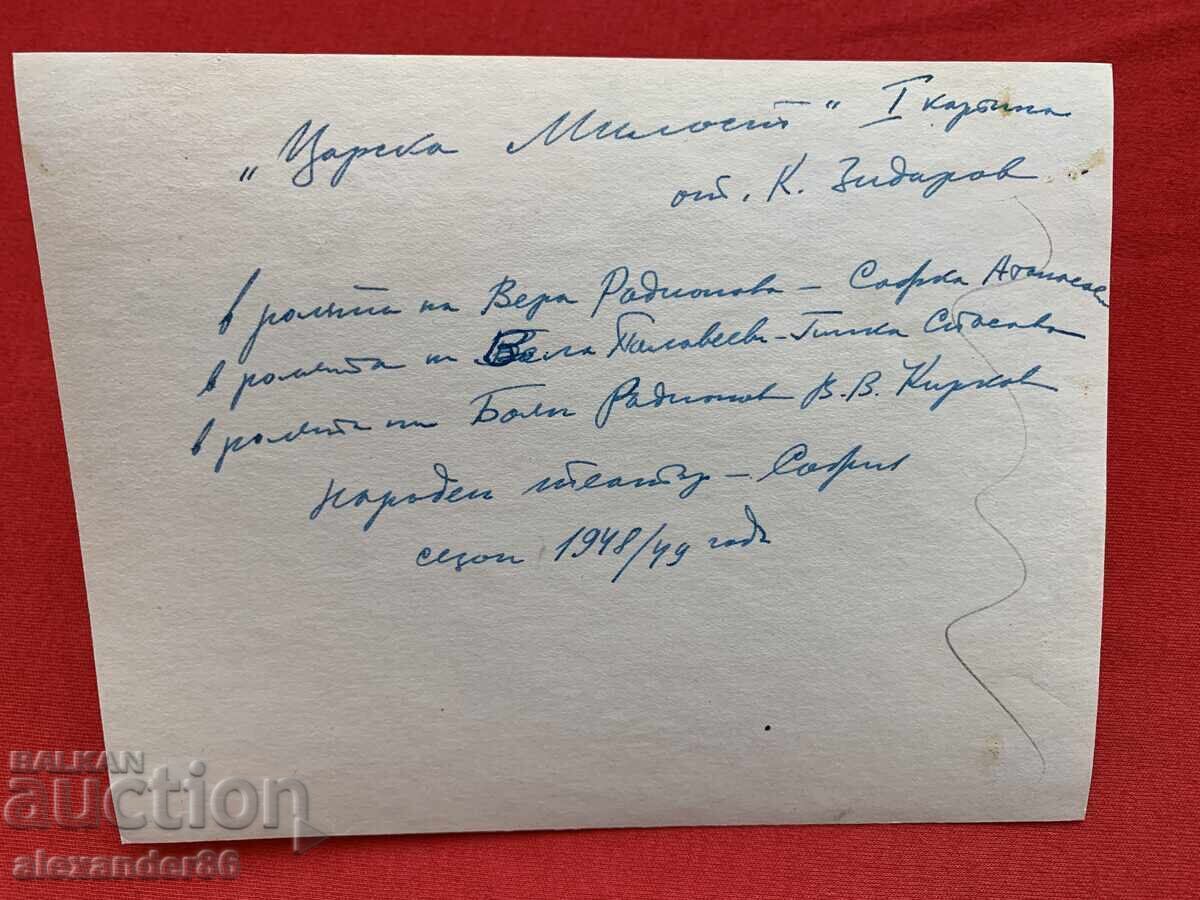 „Царска Милост“ I картина
от К. Зидаров
в ролята на Вера Радионова – Софка Атанасова
в ролята на Вела Паловеева – Гинка Стосава
в ролята на Радионов В. В. Кирков
Народен театър – София
сезон 1948/49 год.
BALKAN
auction
alexander86